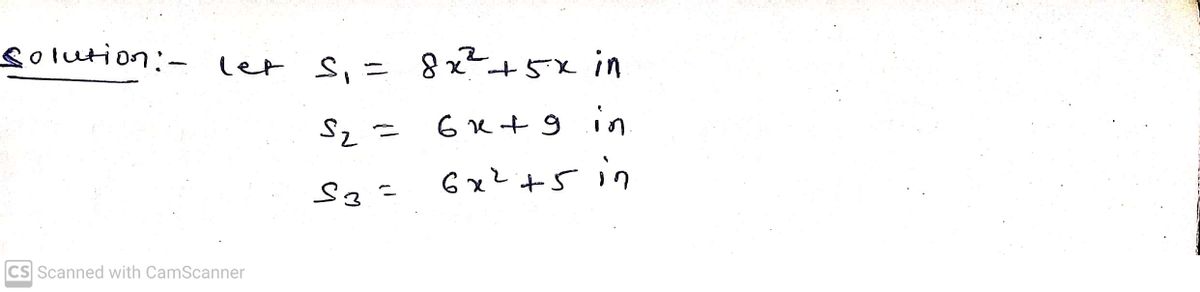 Solution:- let S₁ = 8x²+5x in
S₂ = 6x+9 in
S₃ = 6x²+5 in
CS Scanned with CamScanner